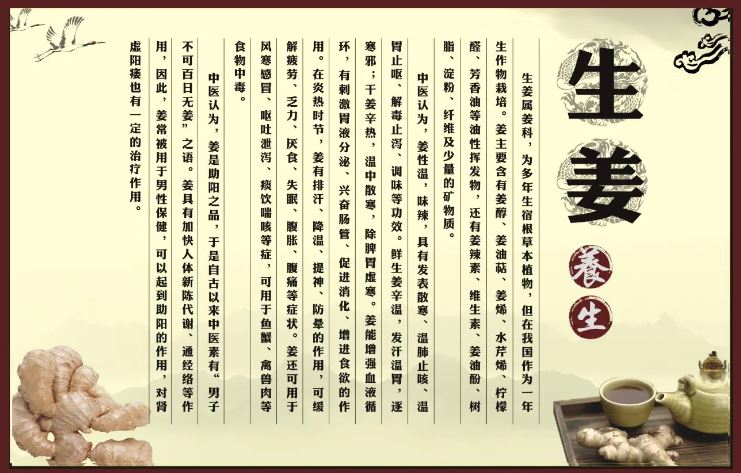 生姜
養生
生姜属姜科，为多年生宿根草本植物，但在我国作为一年
生作物栽培。姜主要含有姜醇、姜油萜、姜烯、水芹烯、柠檬
醛、芳香油等油性挥发物，还有姜辣素、维生素、姜油酚、树
脂、淀粉、纤维及少量的矿物质。
中医认为，姜性温，味辣，具有发表散寒、温肺止咳、温
胃止呕、解毒止泻、调味等功效。鲜生姜辛温，发汗温胃，逐
寒邪；干姜辛热，温中散寒，除脾胃虚寒。姜能增强血液循
环，有刺激胃液分泌、兴奋肠管、促进消化、增进食欲的作
用。在炎热时节，姜有排汗、降温、提神、防晕的作用，可缓
解疲劳、乏力、厌食、失眠、腹胀、腹痛等症状。姜还可用于
风寒感冒、呕吐泄泻、痰饮喘咳等症，可用于鱼蟹、禽兽肉等
食物中毒。
中医认为，姜是助阳之品，于是自古以来中医素有“男子
不可百日无姜”之语。姜具有加快人体新陈代谢、通经络等作
用，因此，姜常被用于男性保健，可以起到助阳的作用，对肾
虚阳痿也有一定的治疗作用。